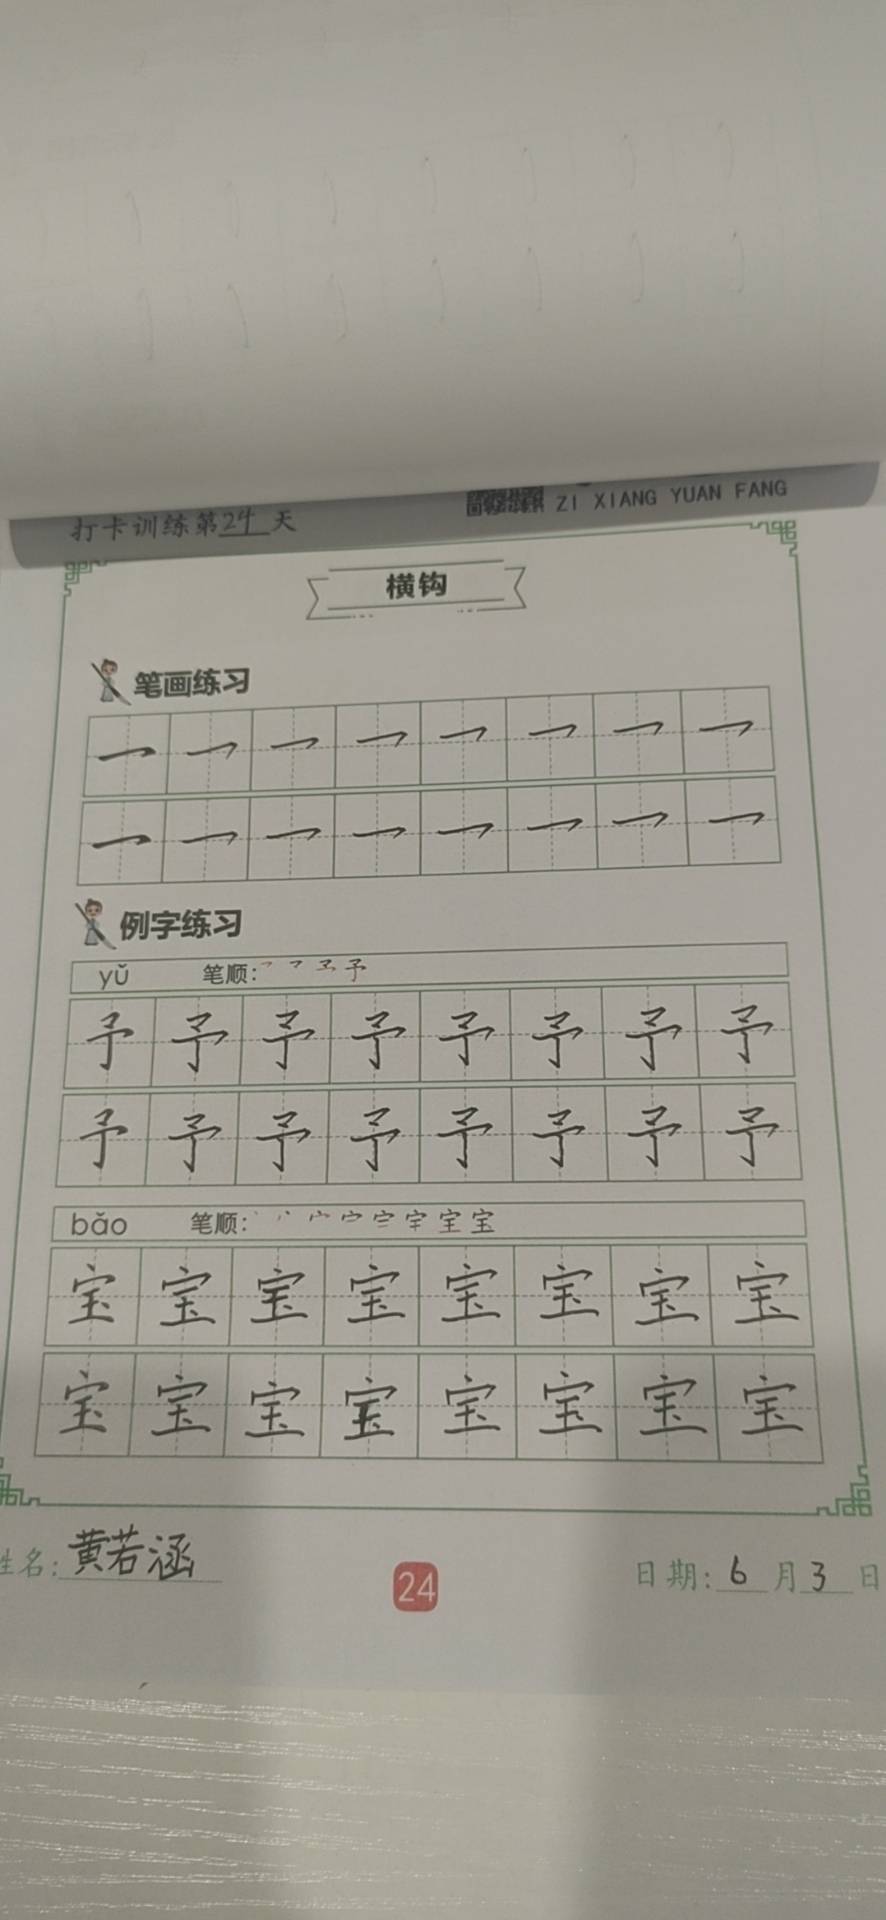 打卡训练第24天
ZI XIANG YUAN FANG
横钩
笔画练习
㇖ ㇖ ㇖ ㇖ ㇖ ㇖ ㇖ ㇖
㇖ ㇖ ㇖ ㇖ ㇖ ㇖ ㇖ ㇖
例字练习
yǔ 笔顺: 予
予 予 予 予 予 予 予 予
予 予 予 予 予 予 予 予
bǎo 笔顺: 宝
宝 宝 宝 宝 宝 宝 宝 宝
宝 宝 宝 宝 宝 宝 宝 宝
姓名: 黄若涵
24
日期: 6 月 3 日